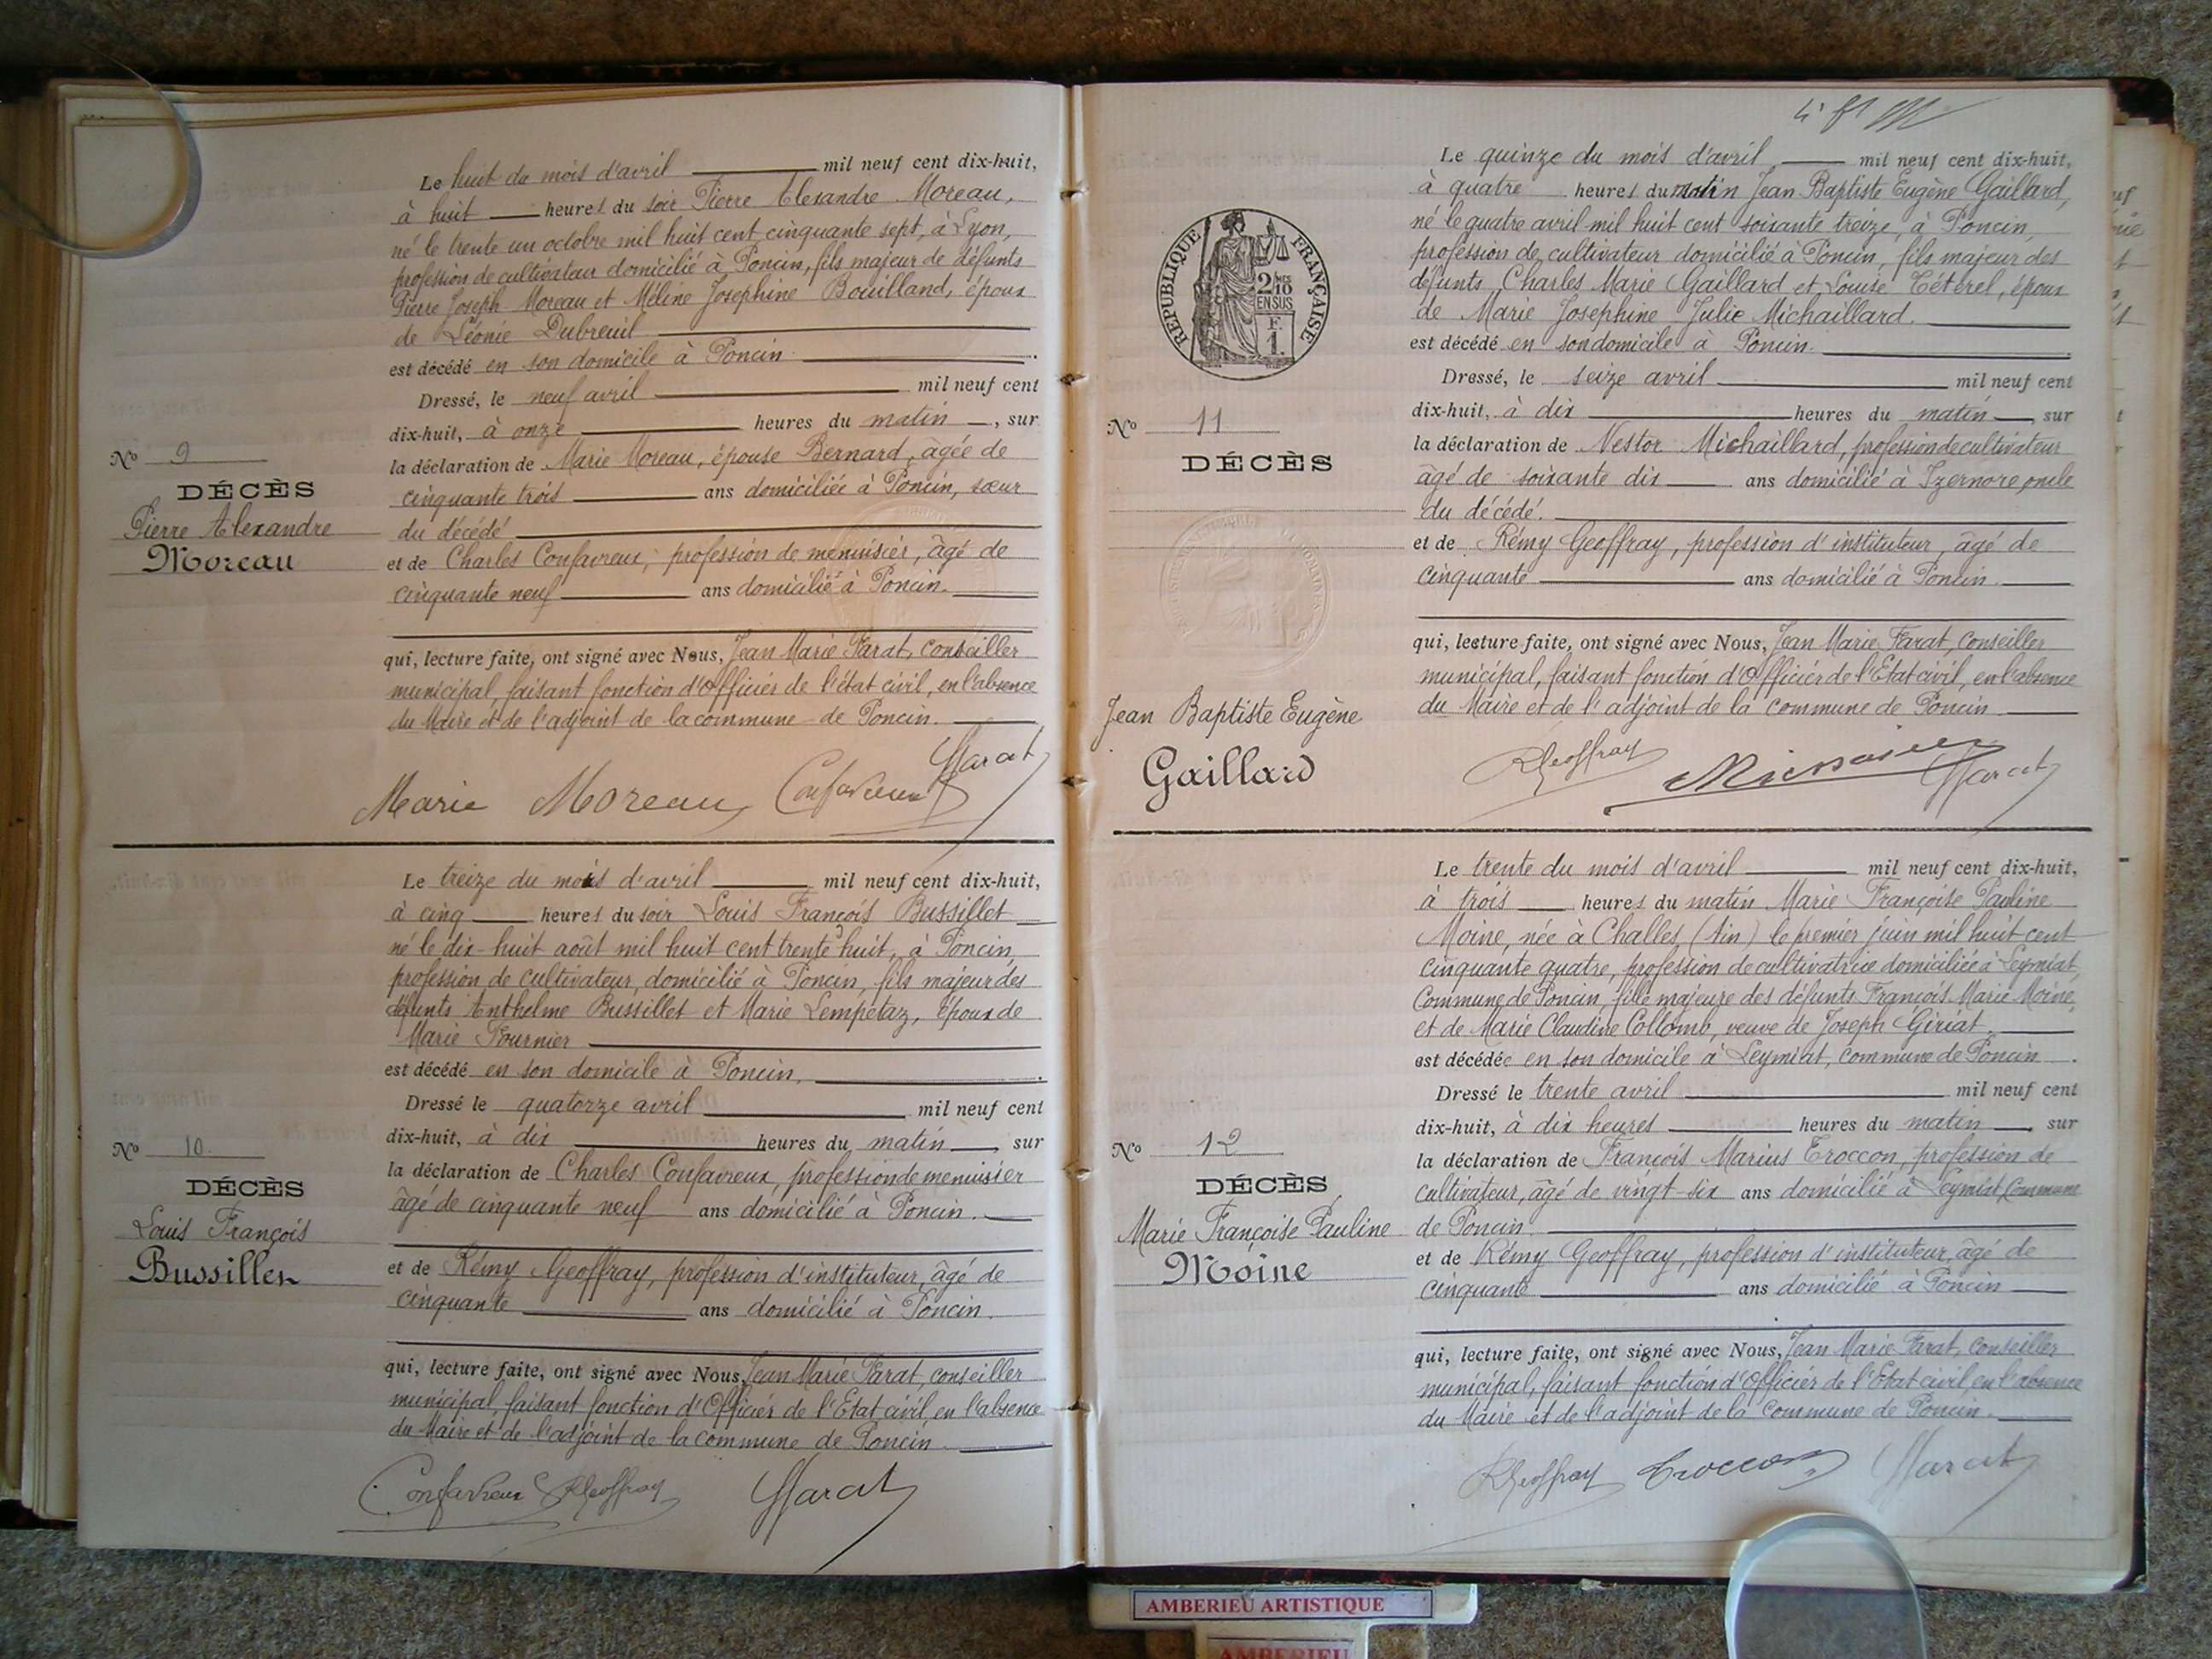 Le huit du mois d'avril mil neuf cent dix-huit,
à huit heures du soir Pierre Alexandre Moreau,
né le trente un octobre mil huit cent cinquante sept, à Lyon,
profession de cultivateur domicilié à Poncin, fils majeur de défunts
Pierre Joseph Moreau et Méline Josephine Bouilland, époux
de Léonie Dubreuil
est décédé en son domicile à Poncin
Dressé, le neuf avril mil neuf cent
dix-huit, à onze heures du matin, sur
la déclaration de Marie Moreau, épouse Bernard, âgée de
cinquante trois ans domiciliée à Poncin, sœur
du décédé
et de Charles Confavreux, profession de menuisier, âgé de
cinquante neuf ans domicilié à Poncin.
qui, lecture faite, ont signé avec Nous, Jean Marie Farat, conseiller
municipal, faisant fonction d'Officier de l'état civil, en l'absence
du Maire et de l'adjoint de la commune de Poncin.
Marie Moreau Confavreux Farat
N° 9
DÉCÈS
Pierre Alexandre
Moreau
Le treize du mois d'avril mil neuf cent dix-huit,
à cinq heures du soir Louis François Bussillet
né le dix-huit août mil huit cent trente huit, à Poncin,
profession de cultivateur, domicilié à Poncin, fils majeur des
défunts Anthelme Bussillet et Marie Lempétaz, époux de
Marie Fournier
est décédé en son domicile à Poncin,
Dressé le quatorze avril mil neuf cent
dix-huit, à dix heures du matin, sur
la déclaration de Charles Confavreux, profession de menuisier
âgé de cinquante neuf ans domicilié à Poncin.
et de Rémy Geoffray, profession d'instituteur, âgé de
cinquante ans domicilié à Poncin.
qui, lecture faite, ont signé avec Nous, Jean Marie Farat, conseiller
municipal, faisant fonction d'Officier de l'Etat civil, en l'absence
du Maire et de l'adjoint de la commune de Poncin.
Confavreux RGeoffray Farat
N° 10.
DÉCÈS
Louis François
Bussillet
RÉPUBLIQUE FRANÇAISE
2/10
EN SUS
F.
1.
Le quinze du mois d'avril, mil neuf cent dix-huit,
à quatre heures du matin Jean Baptiste Eugène Gaillard,
né le quatre avril mil huit cent soixante treize, à Poncin,
profession de cultivateur domicilié à Poncin, fils majeur des
défunts Charles Marie Gaillard et Louise Tétérel, époux
de Marie Josephine Julie Michaillard.
est décédé en son domicile à Poncin.
Dressé, le seize avril mil neuf cent
dix-huit, à dix heures du matin, sur
la déclaration de Nestor Michaillard, profession de cultivateur
âgé de soixante dix ans domicilié à Izernore, oncle
du décédé.
et de Rémy Geoffray, profession d'instituteur, âgé de
cinquante ans domicilié à Poncin.
qui, lecture faite, ont signé avec Nous, Jean Marie Farat, conseiller
municipal, faisant fonction d'Officier de l'Etat civil, en l'absence
du Maire et de l'adjoint de la commune de Poncin
RGeoffray Farat
N° 11
DÉCÈS
Jean Baptiste Eugène
Gaillard
Le trente du mois d'avril mil neuf cent dix-huit,
à trois heures du matin Marie Françoise Pauline
Moine, née à Challes (Ain) le premier juin mil huit cent
cinquante quatre, profession de cultivatrice domiciliée à Leymiat,
Commune de Poncin, fille majeure des défunts François Marie Moine,
et de Marie Claudine Collomb, veuve de Joseph Giriat.
est décédée en son domicile à Leymiat, commune de Poncin.
Dressé le trente avril mil neuf cent
dix-huit, à dix heures heures du matin, sur
la déclaration de François Marius Troccon, profession de
cultivateur, âgé de vingt-six ans domicilié à Leymiat, Commune
de Poncin
et de Rémy Geoffray, profession d'instituteur, âgé de
cinquante ans domicilié à Poncin
qui, lecture faite, ont signé avec Nous, Jean Marie Farat, conseiller
municipal, faisant fonction d'Officier de l'Etat civil, en l'absence
du Maire et de l'adjoint de la Commune de Poncin.
RGeoffray Troccon Farat
N° 12
DÉCÈS
Marie Françoise Pauline
Moine
AMBERIEU ARTISTIQUE
AMBERIEU